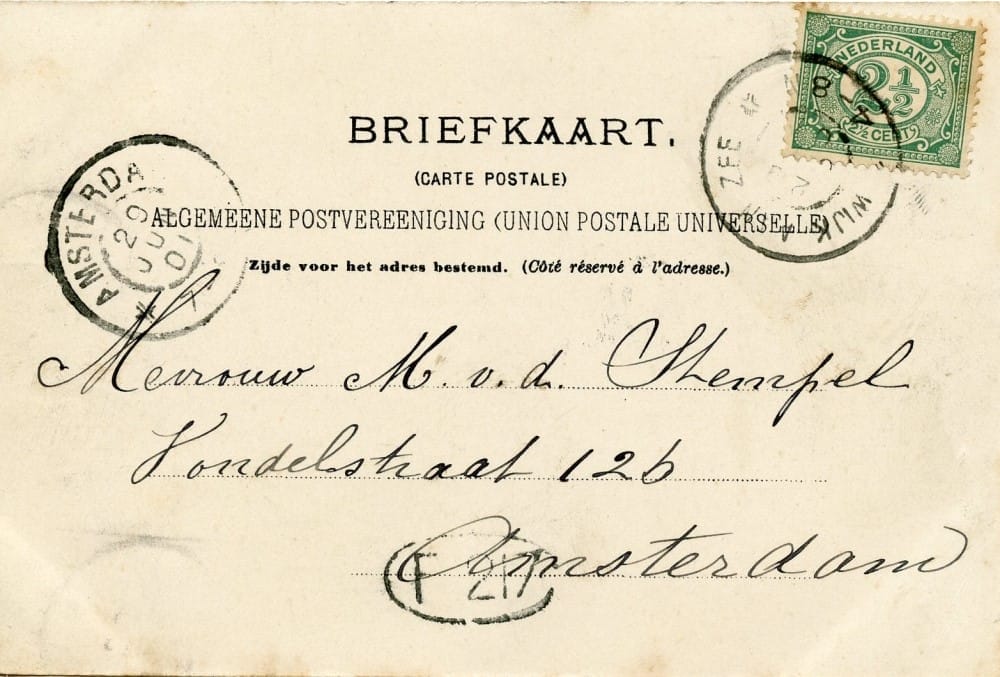 NEDERLAND
2 1/2
(2½ CENT)
WIJK A ZEE
BRIEFKAART.
(CARTE POSTALE)
ALGEMEENE POSTVEREENIGING (UNION POSTALE UNIVERSELLE)
Zijde voor het adres bestemd. (Côté réservé à l'adresse.)
AMSTERDA
29
JU
01
Mevrouw M. v. d. Stempel
Vondelstraat 126
Amsterdam